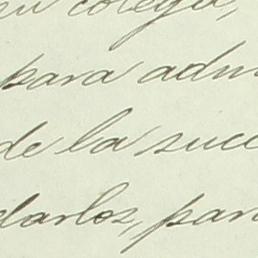 su colega,
para adm
de la suce
darlos, par